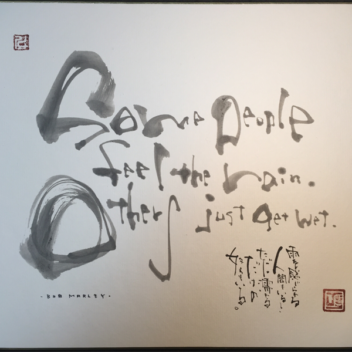 Some people
feel the rain.
Others just get wet.
- BOB MARLEY -
雨を感じられる
人間も
ただ濡れる
だけの